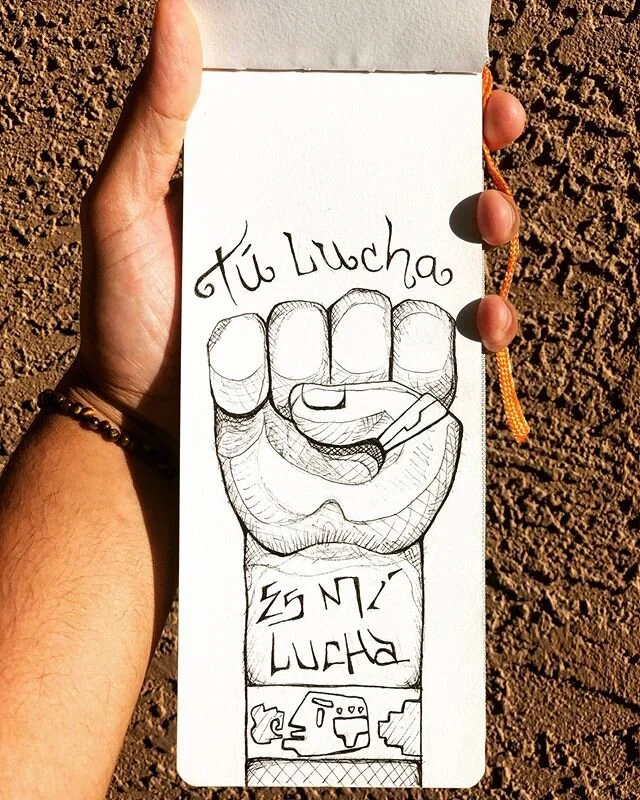 Tú Lucha
Es Mí
LUCHA